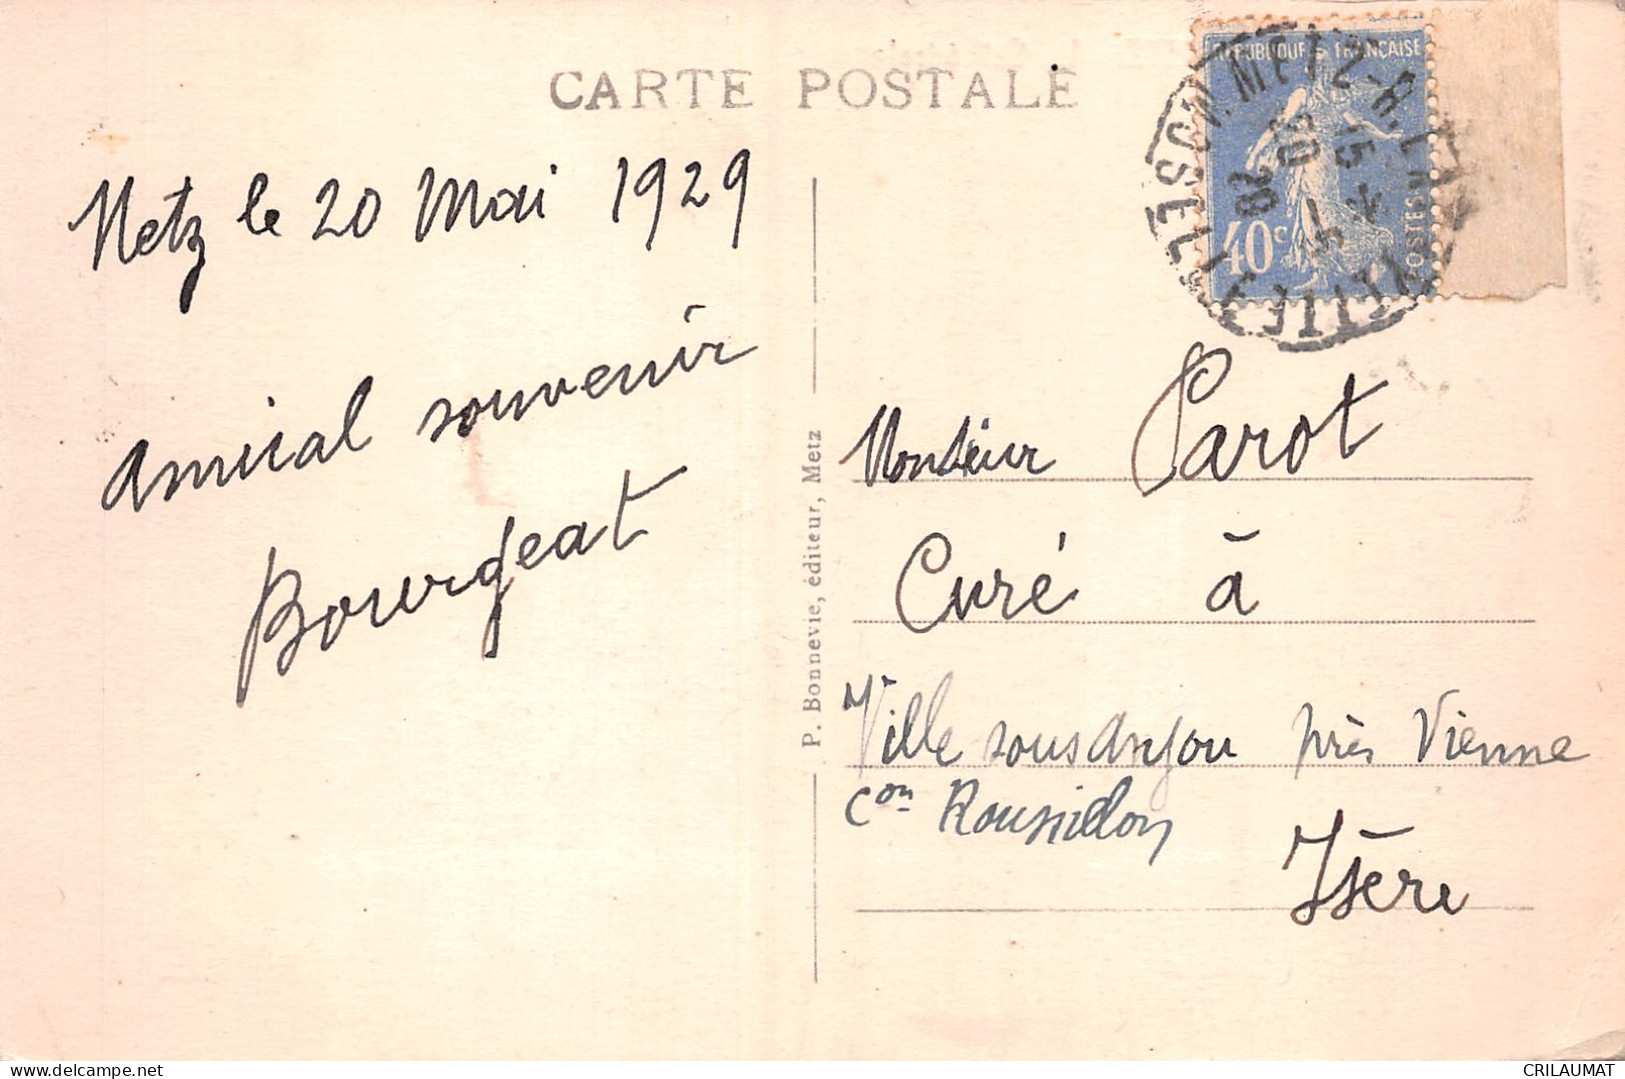 CARTE POSTALE
Metz le 20 Mai 1929
Amical souvenir
Bourgeat
P. Bonnevie, éditeur, Metz
REPUBLIQUE FRANÇAISE
40c
POSTES
15 *
20 - 5
METZ-R.
MOSELLE
Monsieur Parot
Curé à
Ville sous Anjou près Vienne
Con Roussillon
Isère
delcampe.net
CRILAUMAT